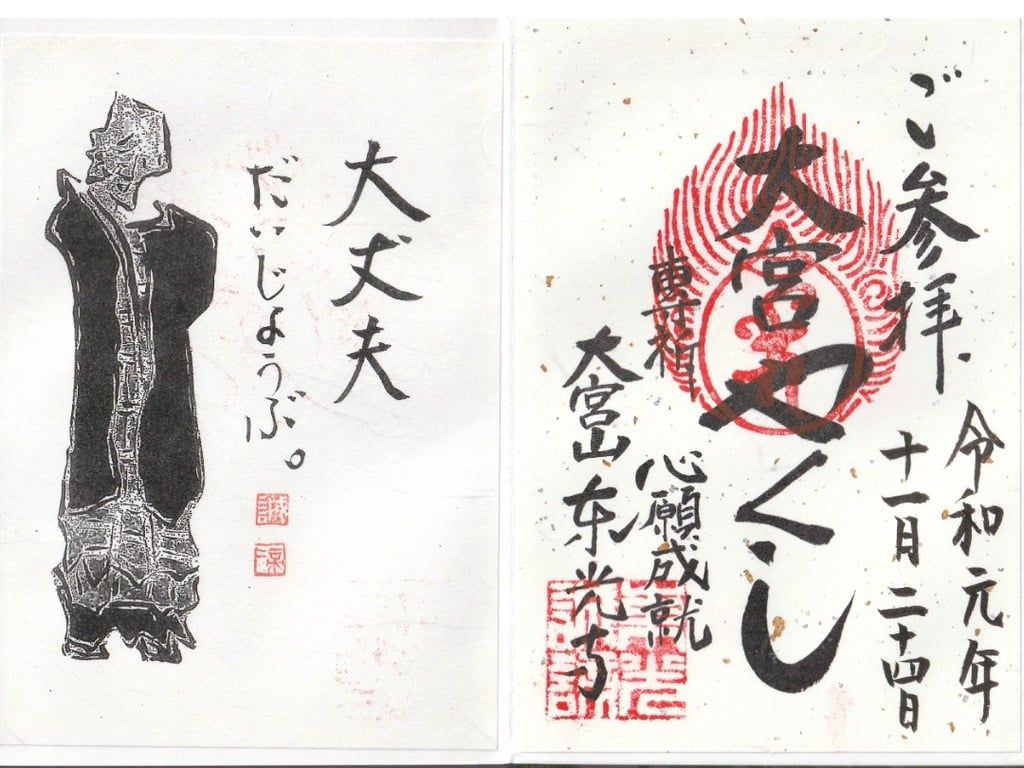 ご参拝
令和元年
十一月二十四日
大宮やくし
専祈
心願成就
大宮山東光寺
大丈夫
だいじょうぶ。